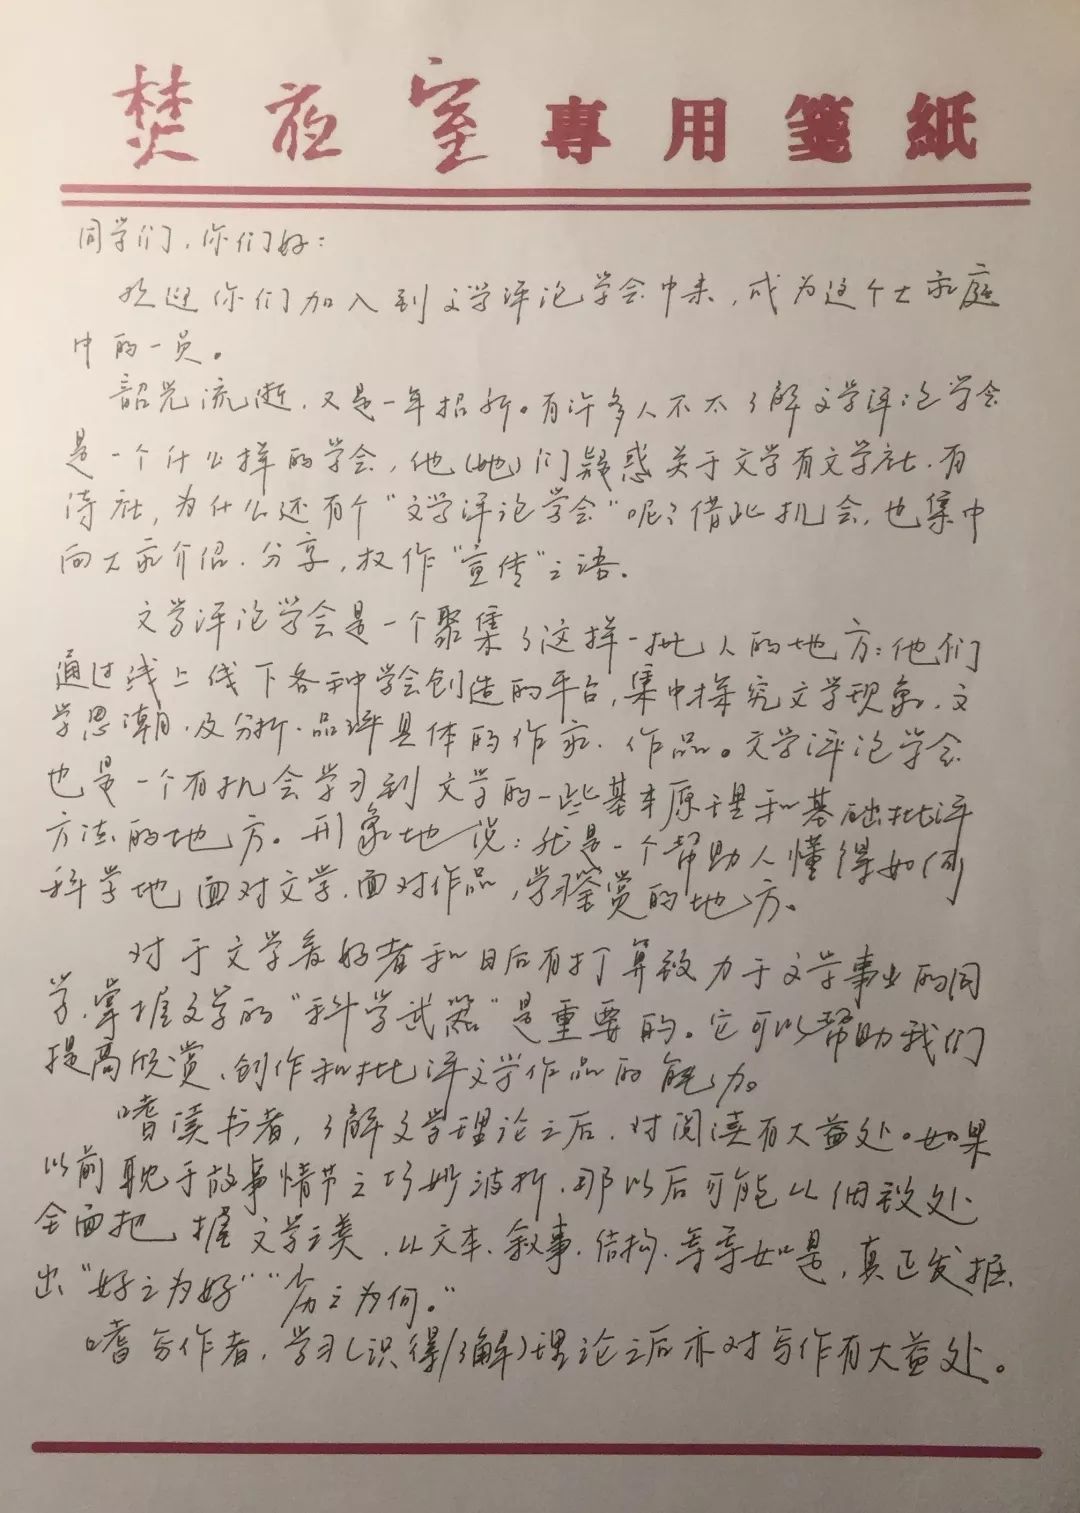 焚夜室 專用箋紙
同学们,你们好:
欢迎你们加入到文学评论学会中来,成为这个大家庭
中的一员。
韶光流逝,又是一年招新。有许多人不太了解文学评论学会
是一个什么样的学会,他(她)们疑惑关于文学有文学社、有
诗社,为什么还有个“文学评论学会”呢?借此机会,也集中
向大家介绍、分享,权作“宣传”之语。
文学评论学会是一个聚集了这样一批人的地方:他们
通过线上线下各种学会创造的平台,集中探究文学现象、文
学思潮、及分析、品评具体的作家、作品。文学评论学会
也是一个有机会学习到文学的一些基本原理和基础批评
方法的地方。形象地说:就是一个帮助人懂得如何
科学地面对文学、面对作品,学习鉴赏的地方。
对于文学爱好者和日后有打算致力于文学事业的同
学,掌握文学的“科学武器”是重要的。它可以帮助我们
提高欣赏、创作和批评文学作品的能力。
嗜读书者,了解文学理论之后,对阅读有大益处。如果
以前耽于故事情节之巧妙波折,那以后可能从细致处、
全面把握文学之美,从文本、叙事、结构、等等如是,真正发掘
出“好之为好”“劣之为何。”
嗜写作者,学习(识得/了解)理论之后亦对写作有大益处。